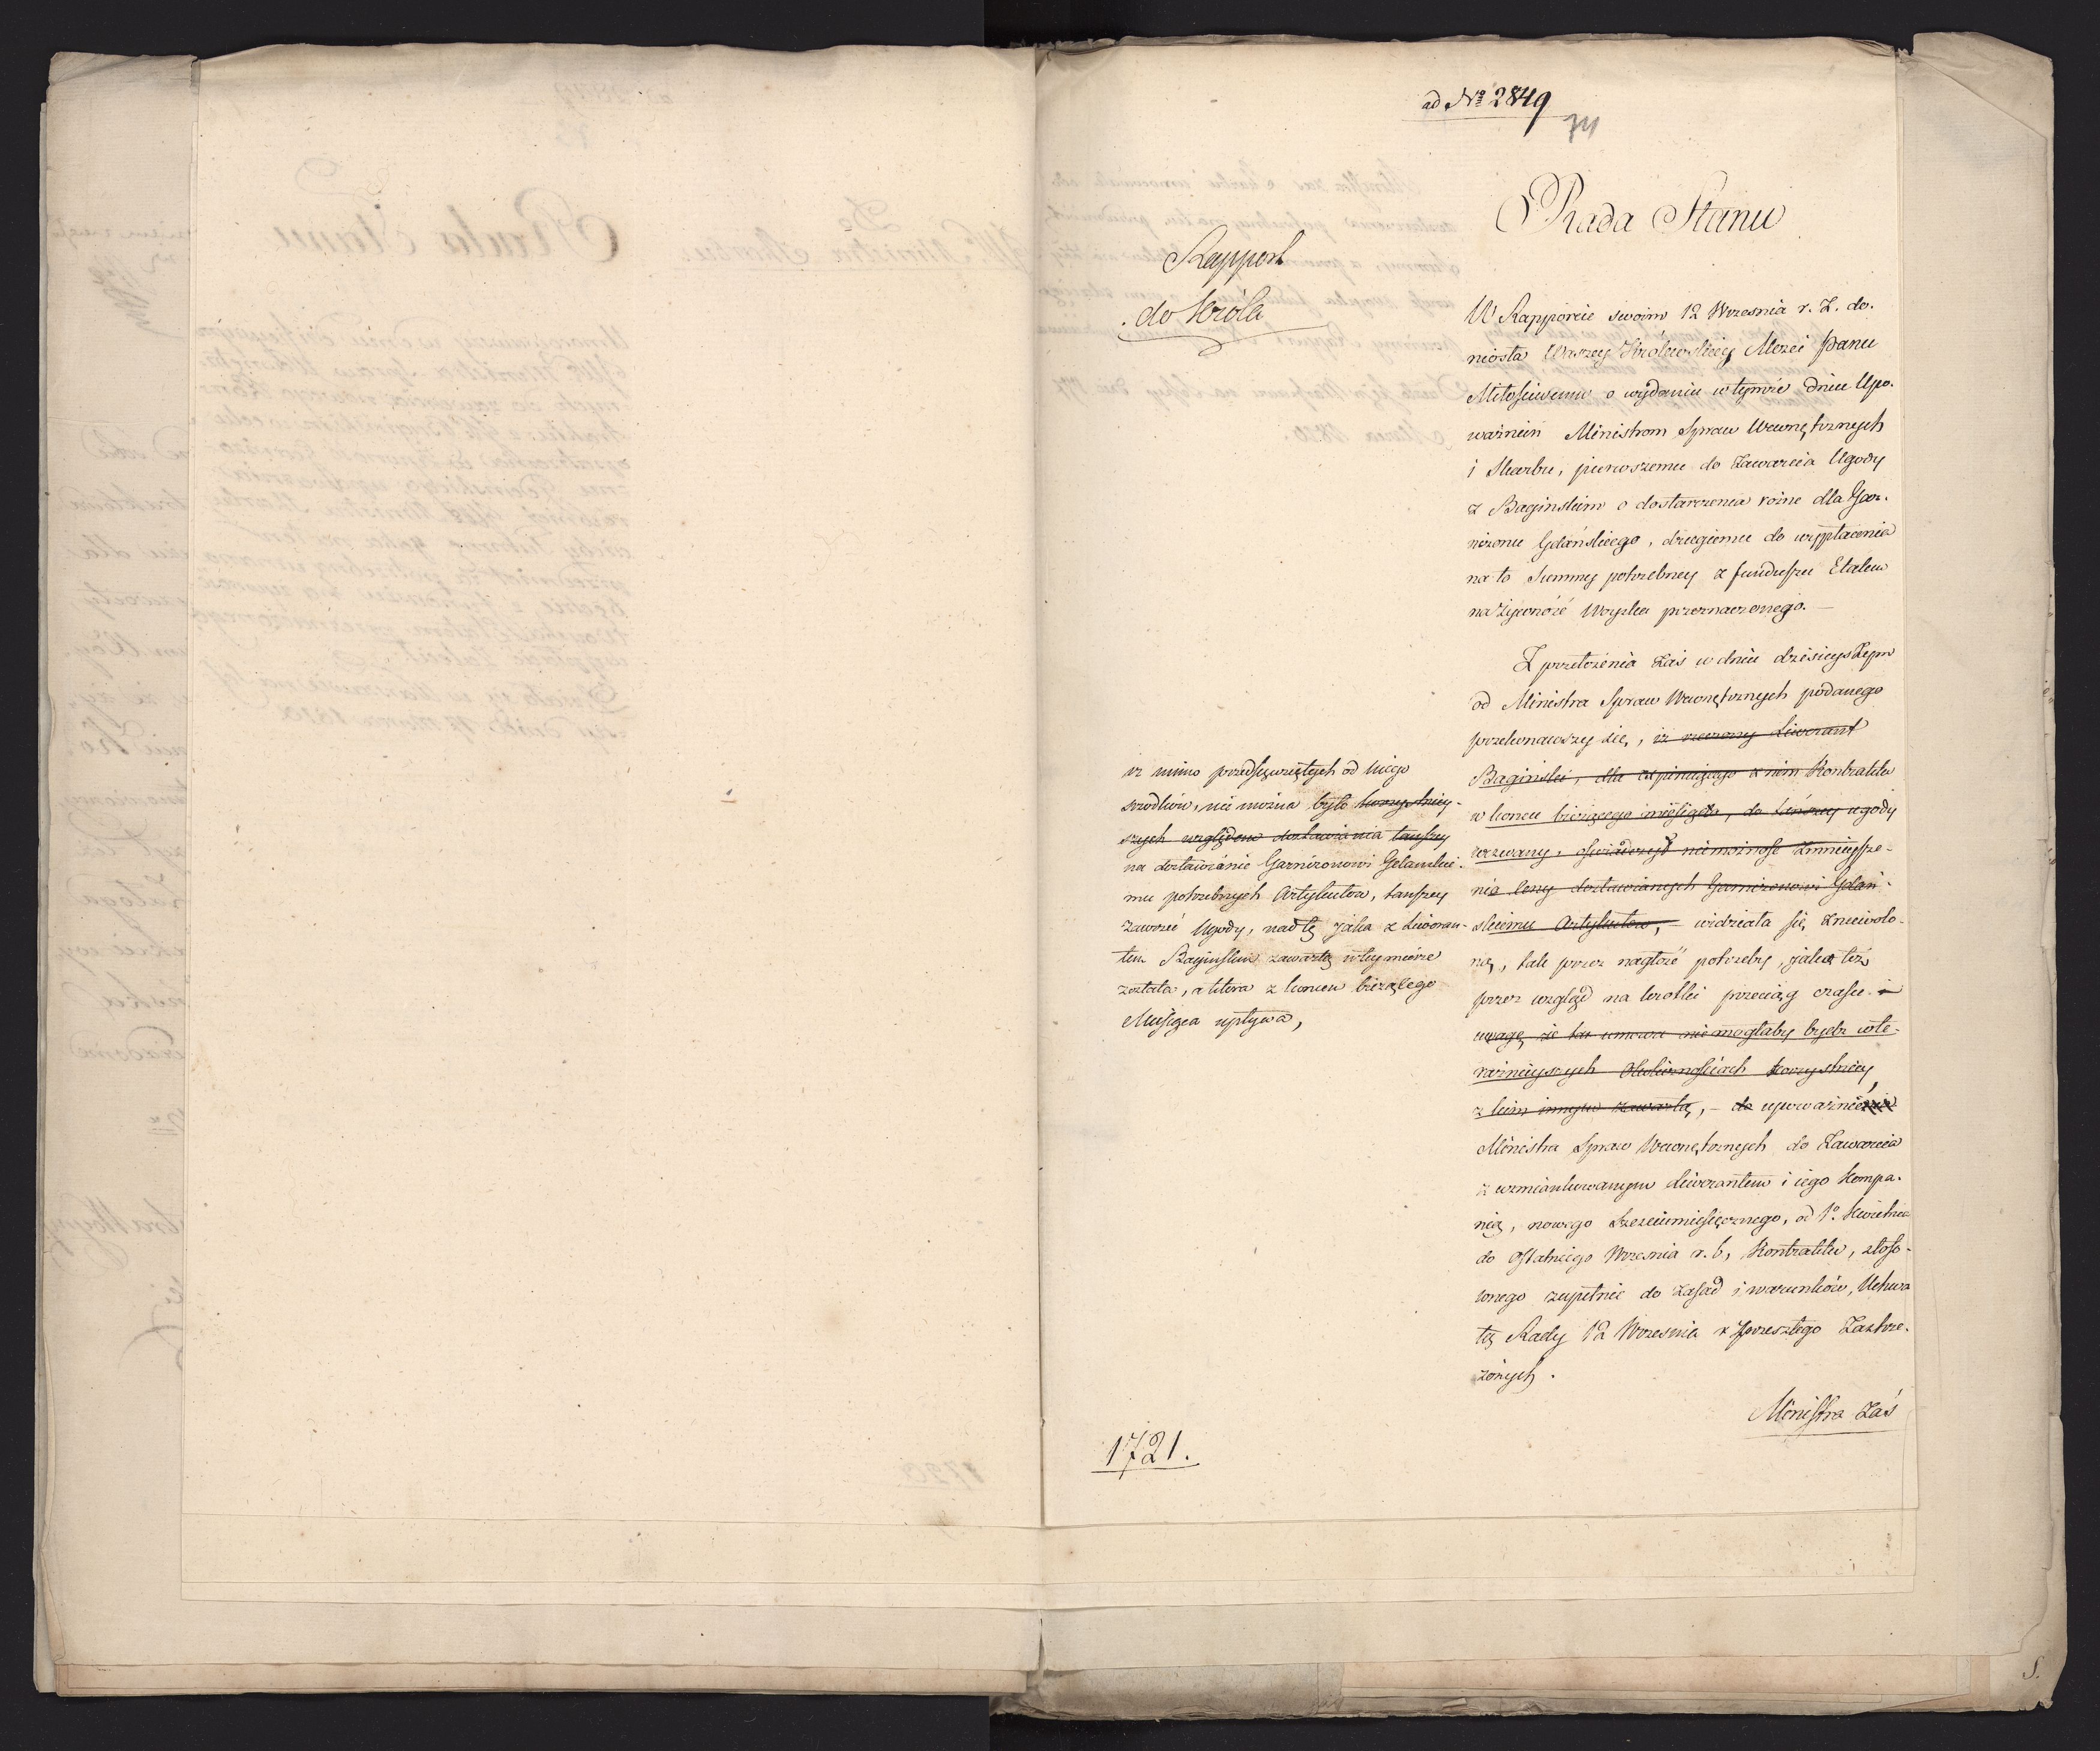 ad No 2849
74
Rada Stanu
Rapport
do Króla
W Rapporcie swoim 12 Wrzesnia r. Z. do-
niosła Waszey Królewskiey Mości Panu
Miłościwemu o wydaniu w tymże dniu Upo-
ważnień Ministrom Spraw Wewnętrznych
i Skarbu, pierwszemu do Zawarcia Ugody
z Baginskim o dostarczenia rożne dla Gar-
nizonu Gdańskiego, drugiemu do wypłacenia
na to Summy potrzebney z funduszu Etatem
na żywność Woyska przeznaczonego.—
Z przełożenia Zaś w dniu dzisieyszym
od Ministra Spraw Wewnętrznych podanego
przekonawszy się, iż rzeczony Liwerant
Baginski, dla expiruiącego z nim Kontraktu
w koncu bieżącego miesiąca, do tańszey ugody
wezwany, oświadczył niemożnosc zmnieysze-
nia ceny dostawianych Garnizonowi Gdań-
skiemu Artykułow,— widziała się zniewolo-
ną, tak przez nagłość potrzeby, jako też
przez wzgląd na krotki przeciąg czasu i
uwagę, że ta umowa nie mogłaby bydz w te-
raźnieyszych Okolicznościach korzystniey
z kim innym zawartą,— do upoważnienia
Ministra Spraw Wewnętrznych do Zawarcia
z wzmiankowanym Liwerantem i iego Kompa-
nią, nowego Sześciomiesięcznego, od 1o Kwietnia
do ostatniego Wrzesnia r. b, Kontraktu, stoso-
wnego zupełnie do Zasad i warunków, Uchwa
łą Rady 12 Wrzesnia r. przeszłego Zastrze-
żonych.
Ministra Zaś
iż mimo przedsięwziętych od niego
srodków, nie można było korzystniey-
szych względem dostawiania tańszey
na dostawianie Garnizonowi Gdanskie-
mu potrzebnych Artykułów, tańszey
zawrzeć Ugody, nad tę jaka z Liweran-
tem Baginskim zawartą w tey mierze
została, a ktora z koncem bieżącego
Miesiąca upływa,
1721.
S.